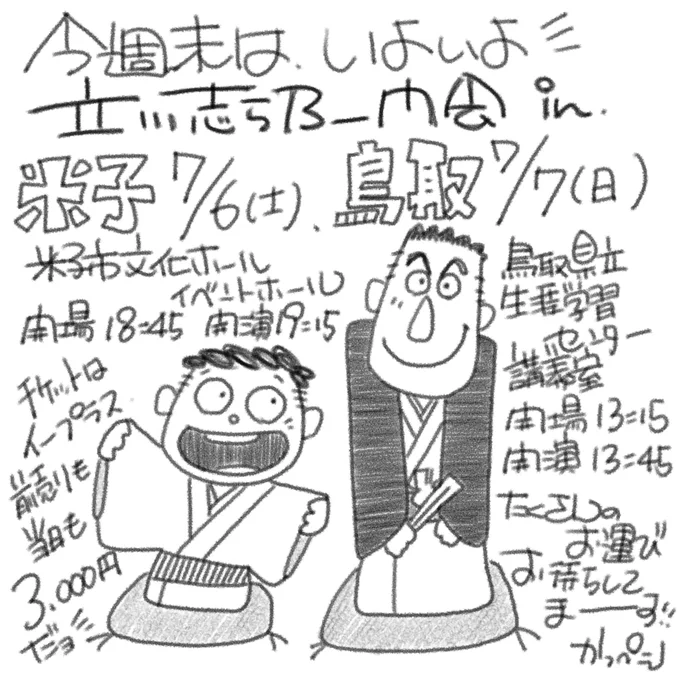 今週末は、いよいよ
立川志ら乃一門会 in.
米子 7/6(土)、
鳥取 7/7(日)
米子市文化ホール
イベントホール
開場 18:45 開演19:15
チケットは
イープラス
前売りも
当日も
3.000円
だョ
鳥取県立
生涯学習
センター
講義室
開場 13:15
開演 13:45
たくさんの
お運び
お待ちして
まーーす!!